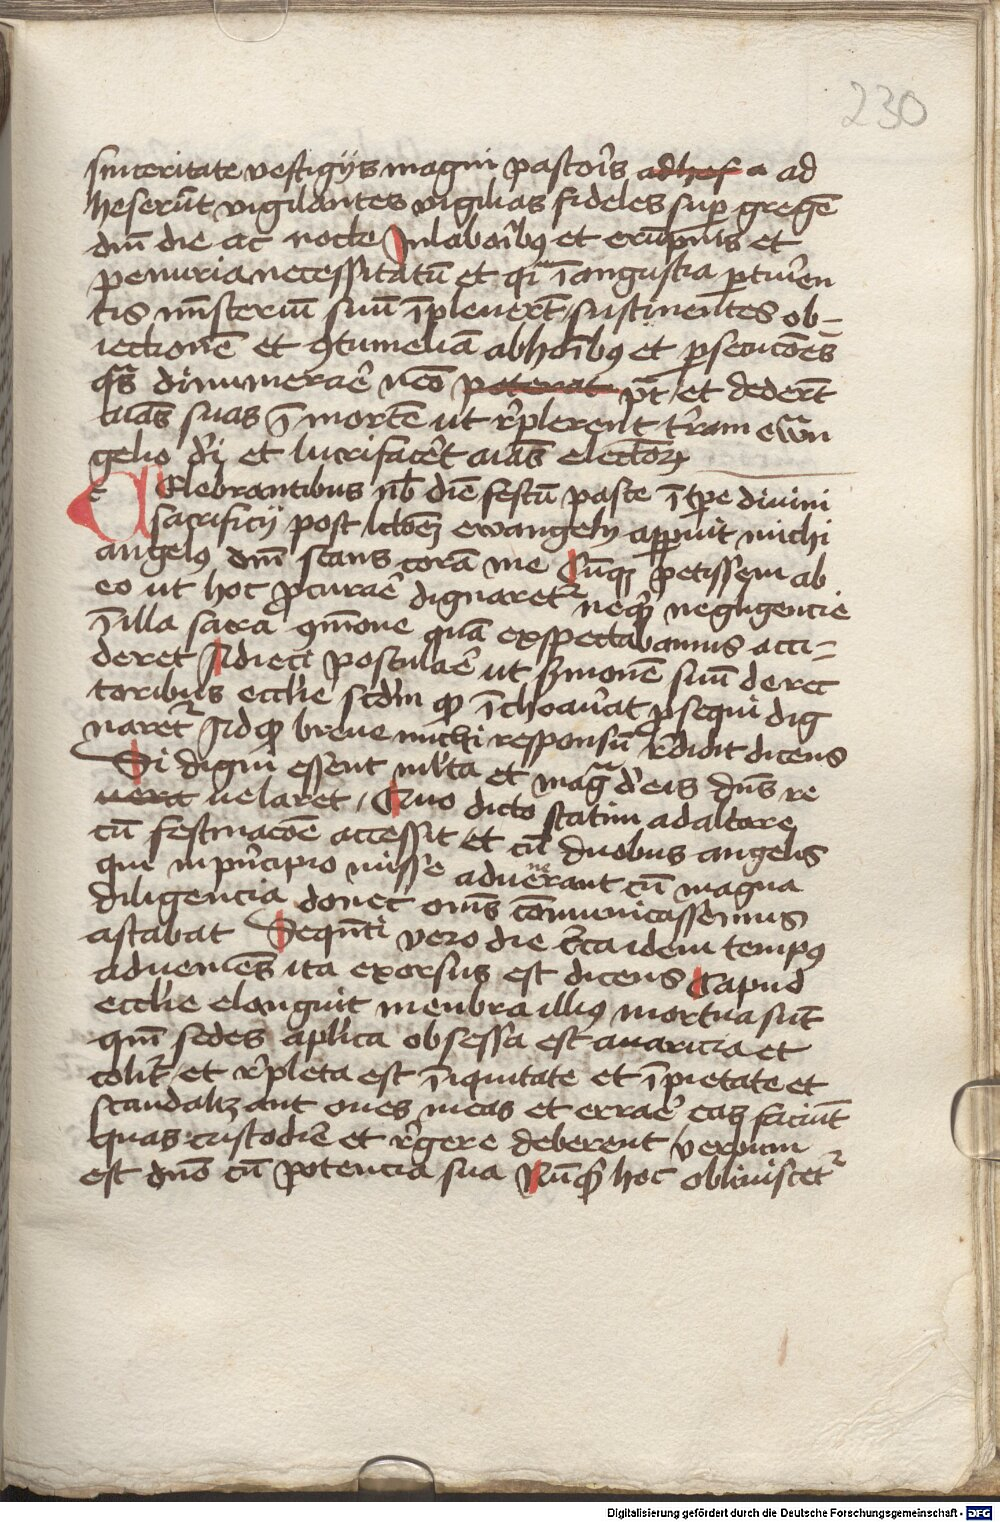 230
sinceritate vestigijs magni pastoris adhes a ad
heserūt vigilantes vigilias fideles sup gregē
dnī die ac nocte In laboībꝯ et erūpnis et
penuria necessitatū et qͥ ī angustia ptūen
tis mīsteriū suū īpleuerēt / sustinentes ob-
iectionē et ꝯtumeliā ab hoībꝯ et psecucōes
qͣs dinumeraē nēo poterat pt / et dederēt
aīas suas ī mortē ut rēplerent trām ewan
gelio dī et lucrifacēt aīas electoꝝ
CElebrantibus nb̄ diē festū pasce ī tpe divini
sacrificij post lctōem ewangelij apparuit michi
angelꝯ dnī stans corā me Cūqꝫ petissem ab
eo ut hoc pcuraē dignaretᷣ neqͥ negligencie
ī illa sacra ꝯmōne quā exspectabamus acci-
deret Adieci postulaē ut smonē suū de rec
toribus ecclīe scdm qͦ īchoauāt psequi dig
naretᷣ Adqͦ breue michi responsū rēdidit dicens
Si digni essent mlta et magͣ dē eis dns re
uera uelaret / Quo dicto statim ad altare
cū festinacōe accessit et cū duobus angelis
qui in pncipio misse aduenerant cū magna
diligencia donec oms cōmunicassemus
astabat Sequēti vero die cͥca idem tempꝯ
adueniēs ita exorsus est dicens Capud
ecclīe elanguit menbra illiꝯ mortua sūt
qm̄ sedes aplica obsessa est auaricia et
colit et rēpleta est īiquitate et īpietate et
scandalizant oues meas et erraē eas faciūt
quas custodiē et rēgere deberent / verbum
est dnō cū potencia sua Nūqͥ hoc obliuiscetᷣ
Digitalisierung gefördert durch die Deutsche Forschungsgemeinschaft - DFG